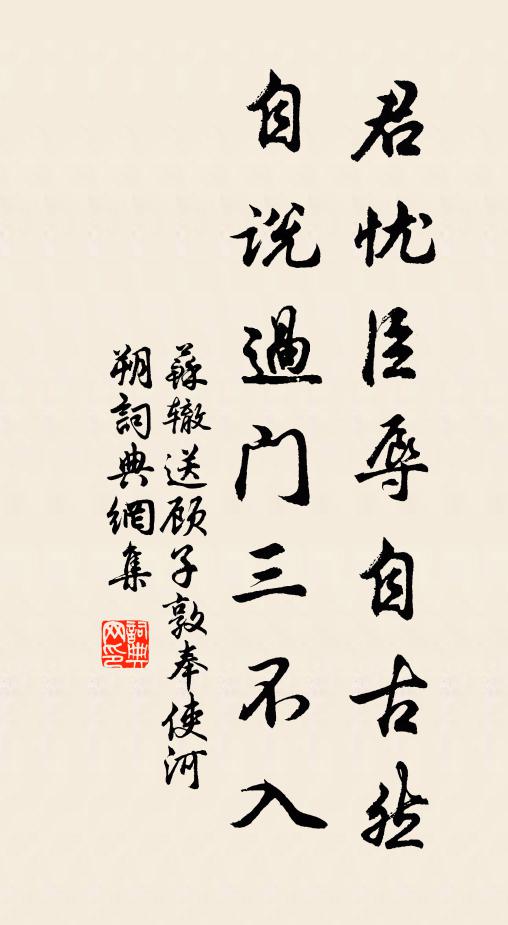 君忧臣辱自古然
自说過门三不入
蘇辙送顾子敦奉使河
朔詞典網集
詞典网印